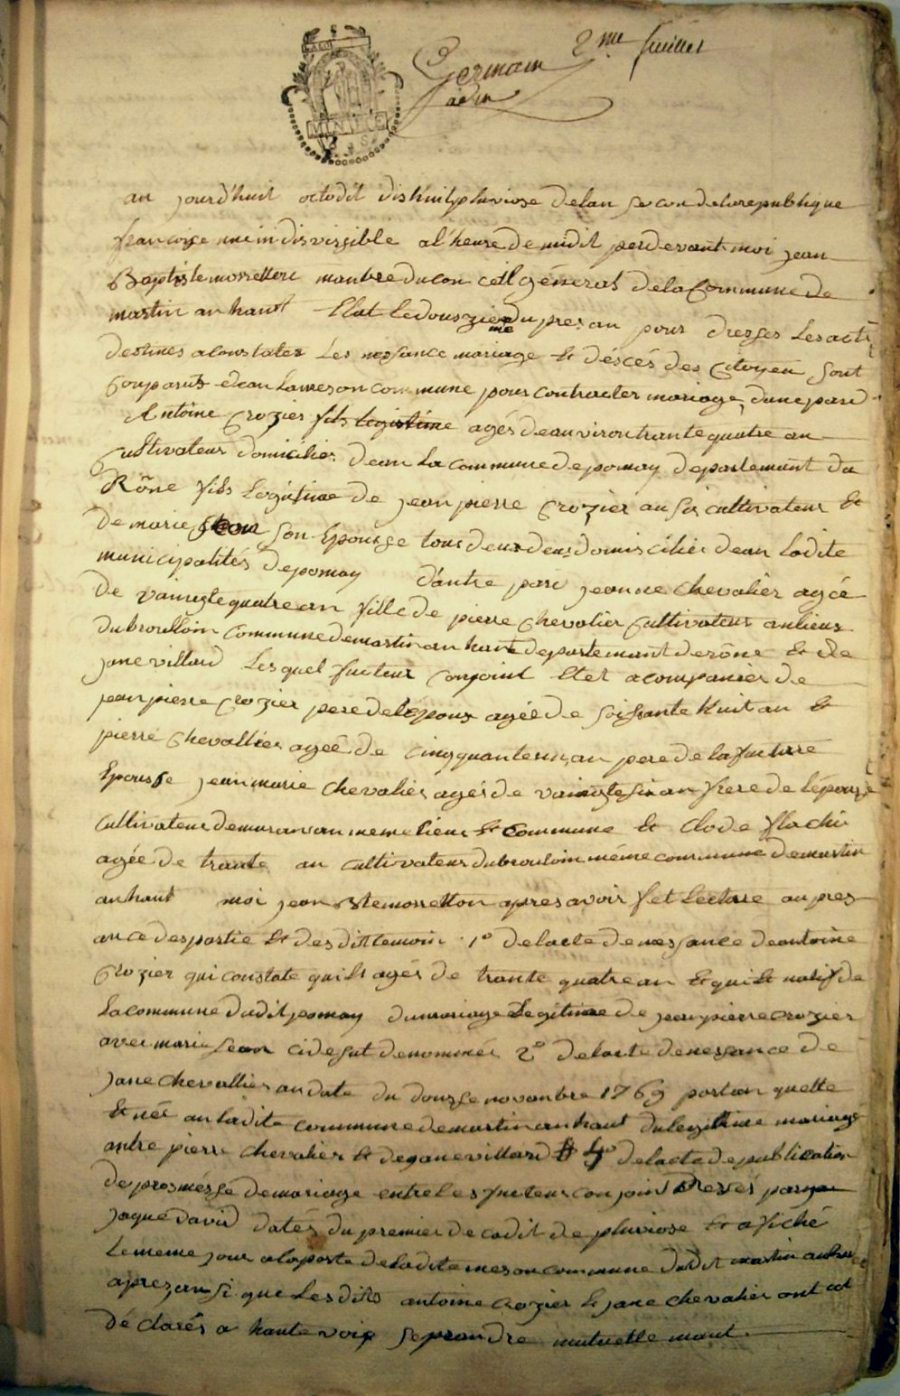 2me feuillet
Germain
adm
MINUTE
au jourd'huit octodit dishuit pluviose delan secon delarepublique
francoise une indisvissible al'heure de midit perdevant moi jean
Baptiste mossetton manbre du con ceil géneral dela Commune de
martin an haut Elut ledouszieme du pres an pour dresser les acte
destines aconstater Les nessance mariage Et déscés des Citoyen sont
Conparus dean La meson commune pour contracter mariage, dune pard
Antoine Crozier fils legistime agés deanviron trante quatre an
Cultivateur domicilies dean La commune depomay departemant du
Rône fils Legitime de jean pierre Crozier ausis cultivateur Et
de marie son Epousse tous deux deus domiscilier dean Ladite
municipalités depomay d'autre pard jeanne chevalier agée
de vainzte quatre an fille de pierre chevalier Cultivateur aulieux
dubroulloin commune demartin an haut departemant derône Et de
jane villard Lesquel futeur conjoint Etet acompanier de
jean pierre Crozier pere de lépoux agée de soissante huit an Et
pierre chevallier agée de cinqquante un an pere de la futurre
Epousse jean marie chevalier agés de vainzte sin an frere de lépousse
Cultivateur demuran au meme lieux Et commune Et clode flachi
agée de trante an cultivateur dubrouloin méme commune demartin
an haut moi jean Bte mossetton apres avoir fet Lecture au pres
ance des partie Et des dit temoin 1o delacte de nessance deantoine
Crozier qui constate quilt agés de trante quatre an Et qui Et natif de
La commune dudit pomay dumariage Legitime de jean pierre crozier
avec marie cidesut denommée 2o delacte denessance de
Jane chevallier an date du dousze novanbre 1769 portan quelle
Et née an ladite commune demartin an haut dulegitime mariage
antre pierre chevalier Et de jane villard delacte de publication
de promésse demariage entre les futeur conjoint dresés par
Jaque david datés du premier de cadit de pluviose Et afiché
Le meme jour a la porte de ladite meson commune dudit martin an haut
apres ansi que Les dits antoine crozier Et jane chevalier ont
dé clarés a haute voix se prandre mutuelle mant.